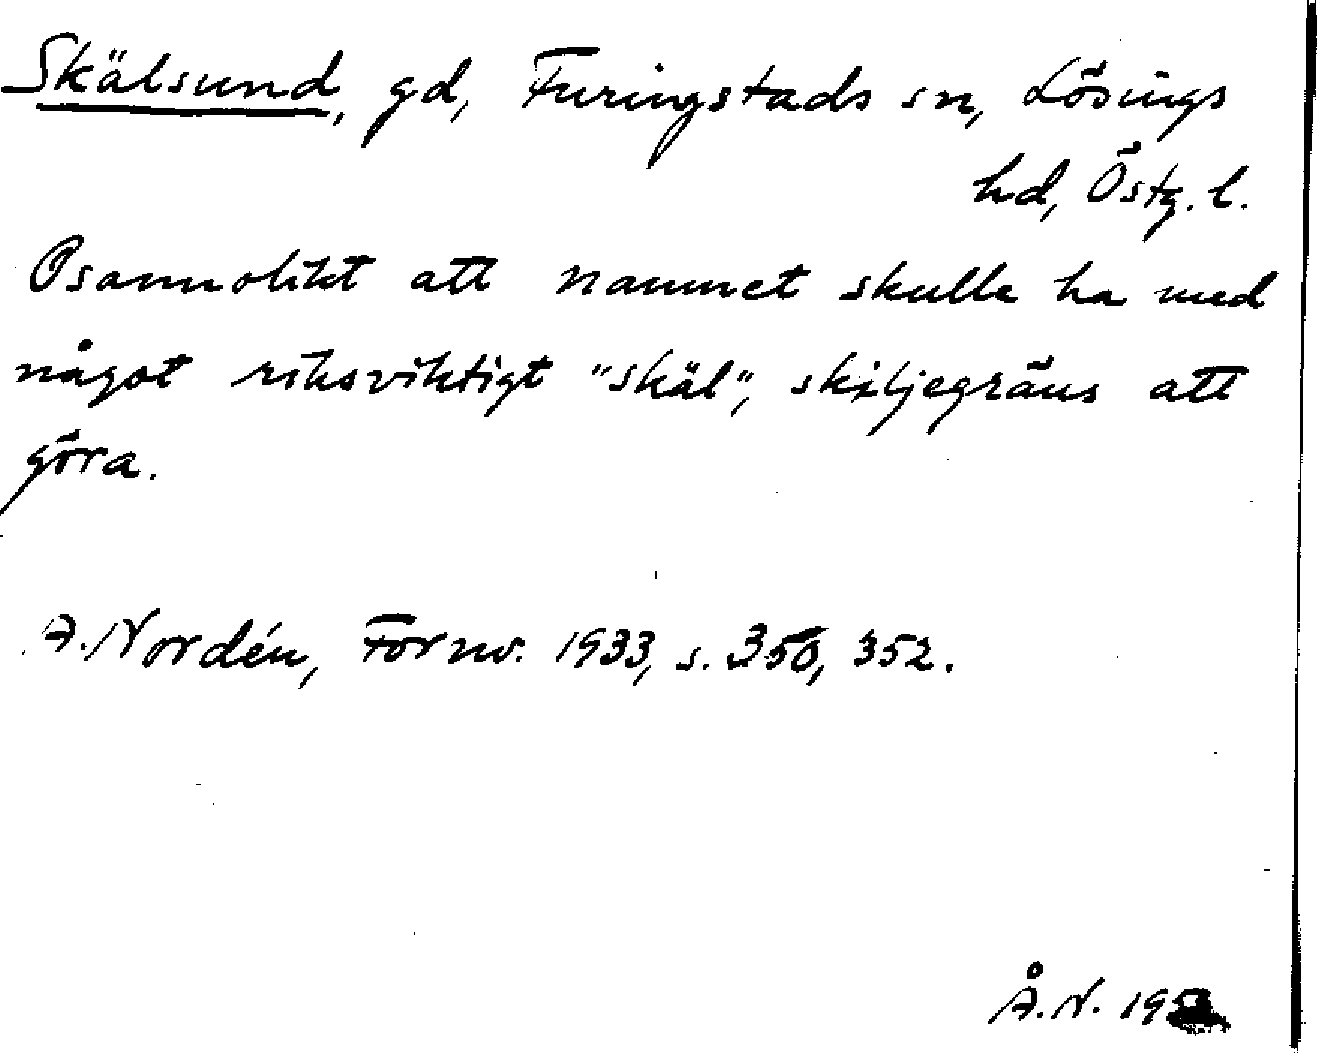 Skälsund, gd, Furingstads sn, Lösings
hd, Östg. l.
Osannolikt att namnet skulle ha med
något riksviktigt "skäl", skiljegräns att
göra.
A. Nordén, Fornv. 1933, s. 350, 352.
Å. N.